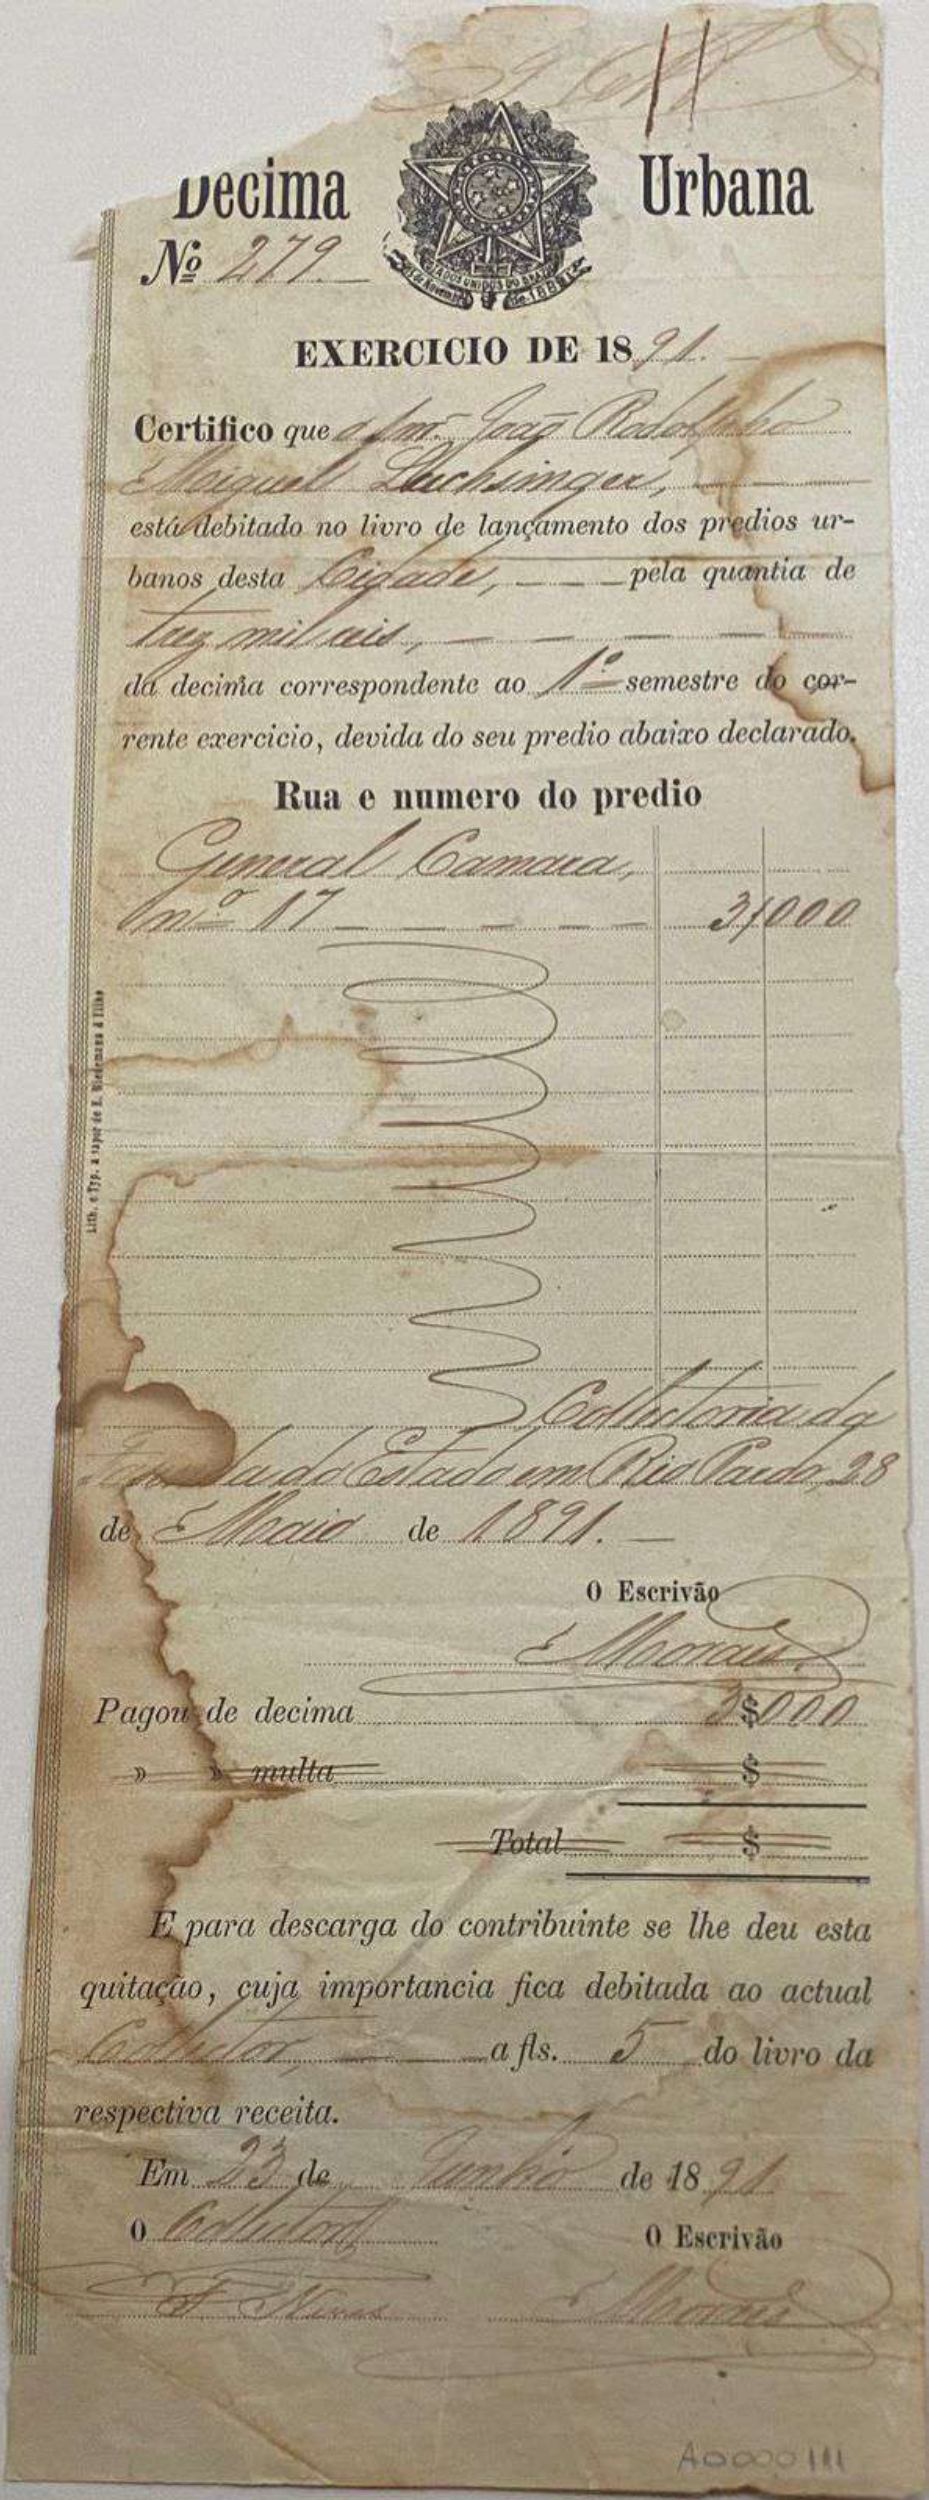 Decima Urbana
Nº 279.
ESTADOS UNIDOS DO BRAZIL
15 de Novembro de 1889
EXERCICIO DE 1891.
Certifico que o Snr. João Rodolpho
Miguel Luchsinger,
está debitado no livro de lançamento dos predios ur-
banos desta Cidade, pela quantia de
trez mil reis,
da decima correspondente ao 1º semestre do cor-
rente exercicio, devida do seu predio abaixo declarado.
Rua e numero do predio
General Camara,
nº 17 3$000
Lith. e Typ. a vapor de R. Strohmann & Filho
Collectoria da
Fazenda do Estado em Rio Pardo, 28
de Maio de 1891.
O Escrivão
Moraes
Pagou de decima 3$000
» » multa $
Total $
E para descarga do contribuinte se lhe deu esta
quitação, cuja importancia fica debitada ao actual
Collector, a fls. 5 do livro da
respectiva receita.
Em 23 de Junho de 1891
O Collector O Escrivão
F. Neves Moraes
A0000111